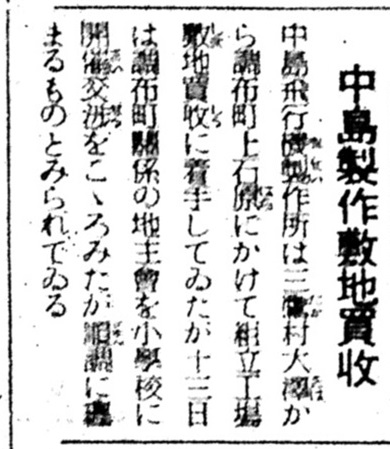 中島製作敷地買收
中島飛行機製作所は三鷹村大澤か
ら調布町上石原にかけて組立工場
敷地買收に着手してゐたが十三日
は調布町關係の地主會を小學校に
開催交渉をこゝろみたが順調に
まるものとみられてゐる